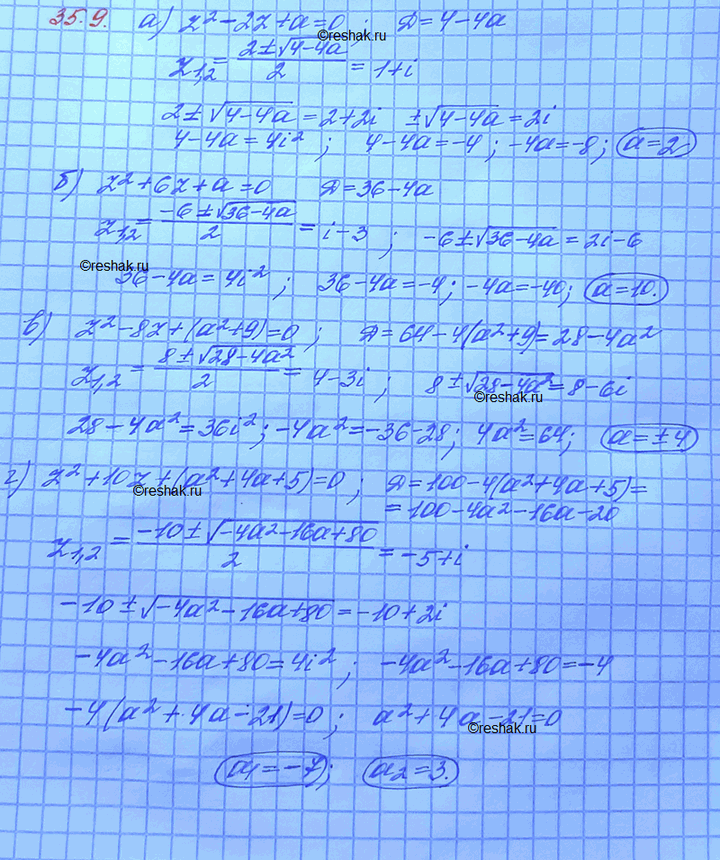 35.9. а) z² - 2z + a = 0 ; D = 4 - 4a
z₁,₂ = (2 ± √(4 - 4a))/2 = 1 + i
2 ± √(4 - 4a) = 2 + 2i ± √(4 - 4a) = 2i
4 - 4a = 4i² ; 4 - 4a = -4 ; -4a = -8 ; a = 2
б) z² + 6z + a = 0 D = 36 - 4a
z₁,₂ = (-6 ± √(36 - 4a))/2 = i - 3 ; -6 ± √(36 - 4a) = 2i - 6
36 - 4a = 4i² ; 36 - 4a = -4 ; -4a = -40 ; a = 10.
в) z² - 8z + (a² + 9) = 0 ; D = 64 - 4(a² + 9) = 28 - 4a²
z₁,₂ = (8 ± √(28 - 4a²))/2 = 4 - 3i ; 8 ± √(28 - 4a²) = 8 - 6i
28 - 4a² = 36i² ; -4a² = -36 - 28 ; 4a² = 64 ; a = ± 4
г) z² + 10z + (a² + 4a + 5) = 0 ; D = 100 - 4(a² + 4a + 5) =
= 100 - 4a² - 16a - 20
z₁,₂ = (-10 ± √(-4a² - 16a + 80))/2 = -5 + i
-10 ± √(-4a² - 16a + 80) = -10 + 2i
-4a² - 16a + 80 = 4i² ; -4a² - 16a + 80 = -4
-4(a² + 4a - 21) = 0 ; a² + 4a - 21 = 0
a₁ = -7 ; a₂ = 3.
©reshak.ru
©reshak.ru
©reshak.ru
©reshak.ru
©reshak.ru